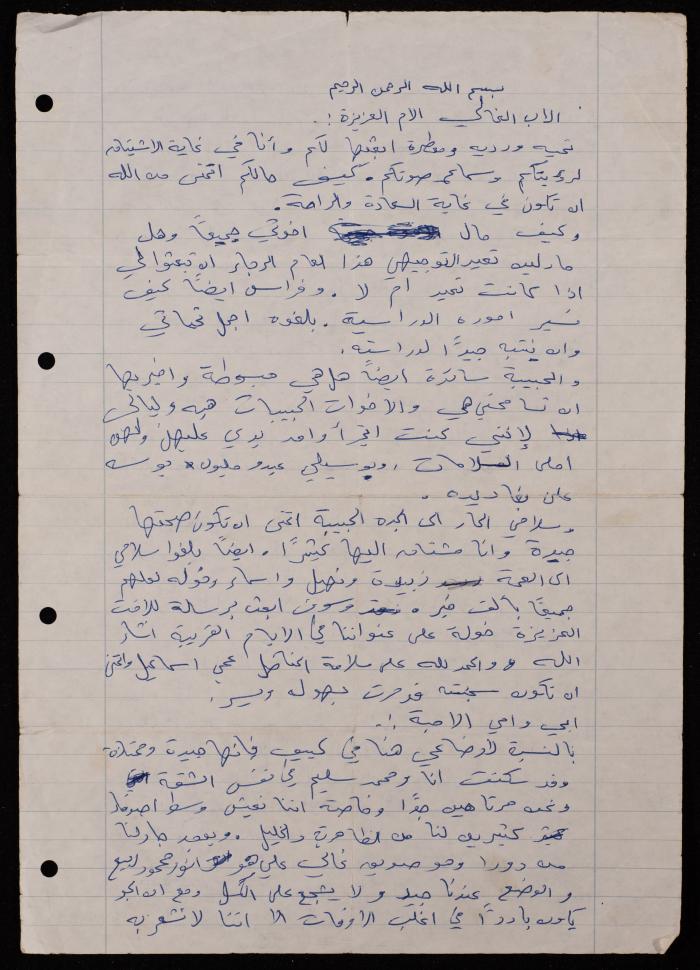 بسم الله الرحمن الرحيم
الاب الغالي الام العزيزة :.
تحيه ورديه ومعطرة ابعثها لكم وأنا في غاية الاشتياق
لرؤيتكم وسماع صوتكم. كيف حالكم اتمنى من الله
ان تكون في غاية السعادة والراحة.
وكيف حال اخوتي جميعًا وهل
مادلين تعيد التوجيهي هذا العام الرجاء ان تبعثوا لي
اذا كانت تعيد ام لا. وفراس ايضًا كيف
تسير اموره الدراسية. بلغوه اجمل تحياتي
وان ينتبه جيدًا لدراسته.
والحبيبة سائدة ايضًا هل هي مبسوطة واخبريها
ان تسامحني هي والأخوات الحبيبات هبه وليالي
لإنني كنت
احلى السلامات، وبوسيلي عبدو مليون بوسه
على
وسلامي الحار الى الجده الحبيبة اتمنى ان تكون صحتها
جيدة وأنا مشتاق اليها كثيرًا. ايضًا بلغوا سلامي
الى العمة زبيدة ونهيل واسماء وخوله لعلهم
جميعًا بألف خير. وسوف ابعث برسالة للاخت
العزيزة خولة على عنوانها في الايام القريبة انشاء
الله والحمد لله على سلامة المناضل عمي اسماعيل واتمنى
ان تكون سجنته قد مرت بسهوله ويسر.
ابي وامي الاحبة :.
بالنسبة لأوضاعي هنا في كييف فإنها جيدة وممتازة
وقد سكنت انا ومحمد سليم في نفس الشقة
ونحن مرتاحين جدًا وخاصة اننا نعيش وسط اصدقاء
كثيرين لنا من الظاهرية والخليل. ويوجد جارنا
من دورا وهو صديق غالي علي هو انور محمود ربيع
والوضع عندنا جيد ولا يشجع على الكسل ومع ان الجو
يكون باردًا في اغلب الأوقات الا اننا لا نشعر به